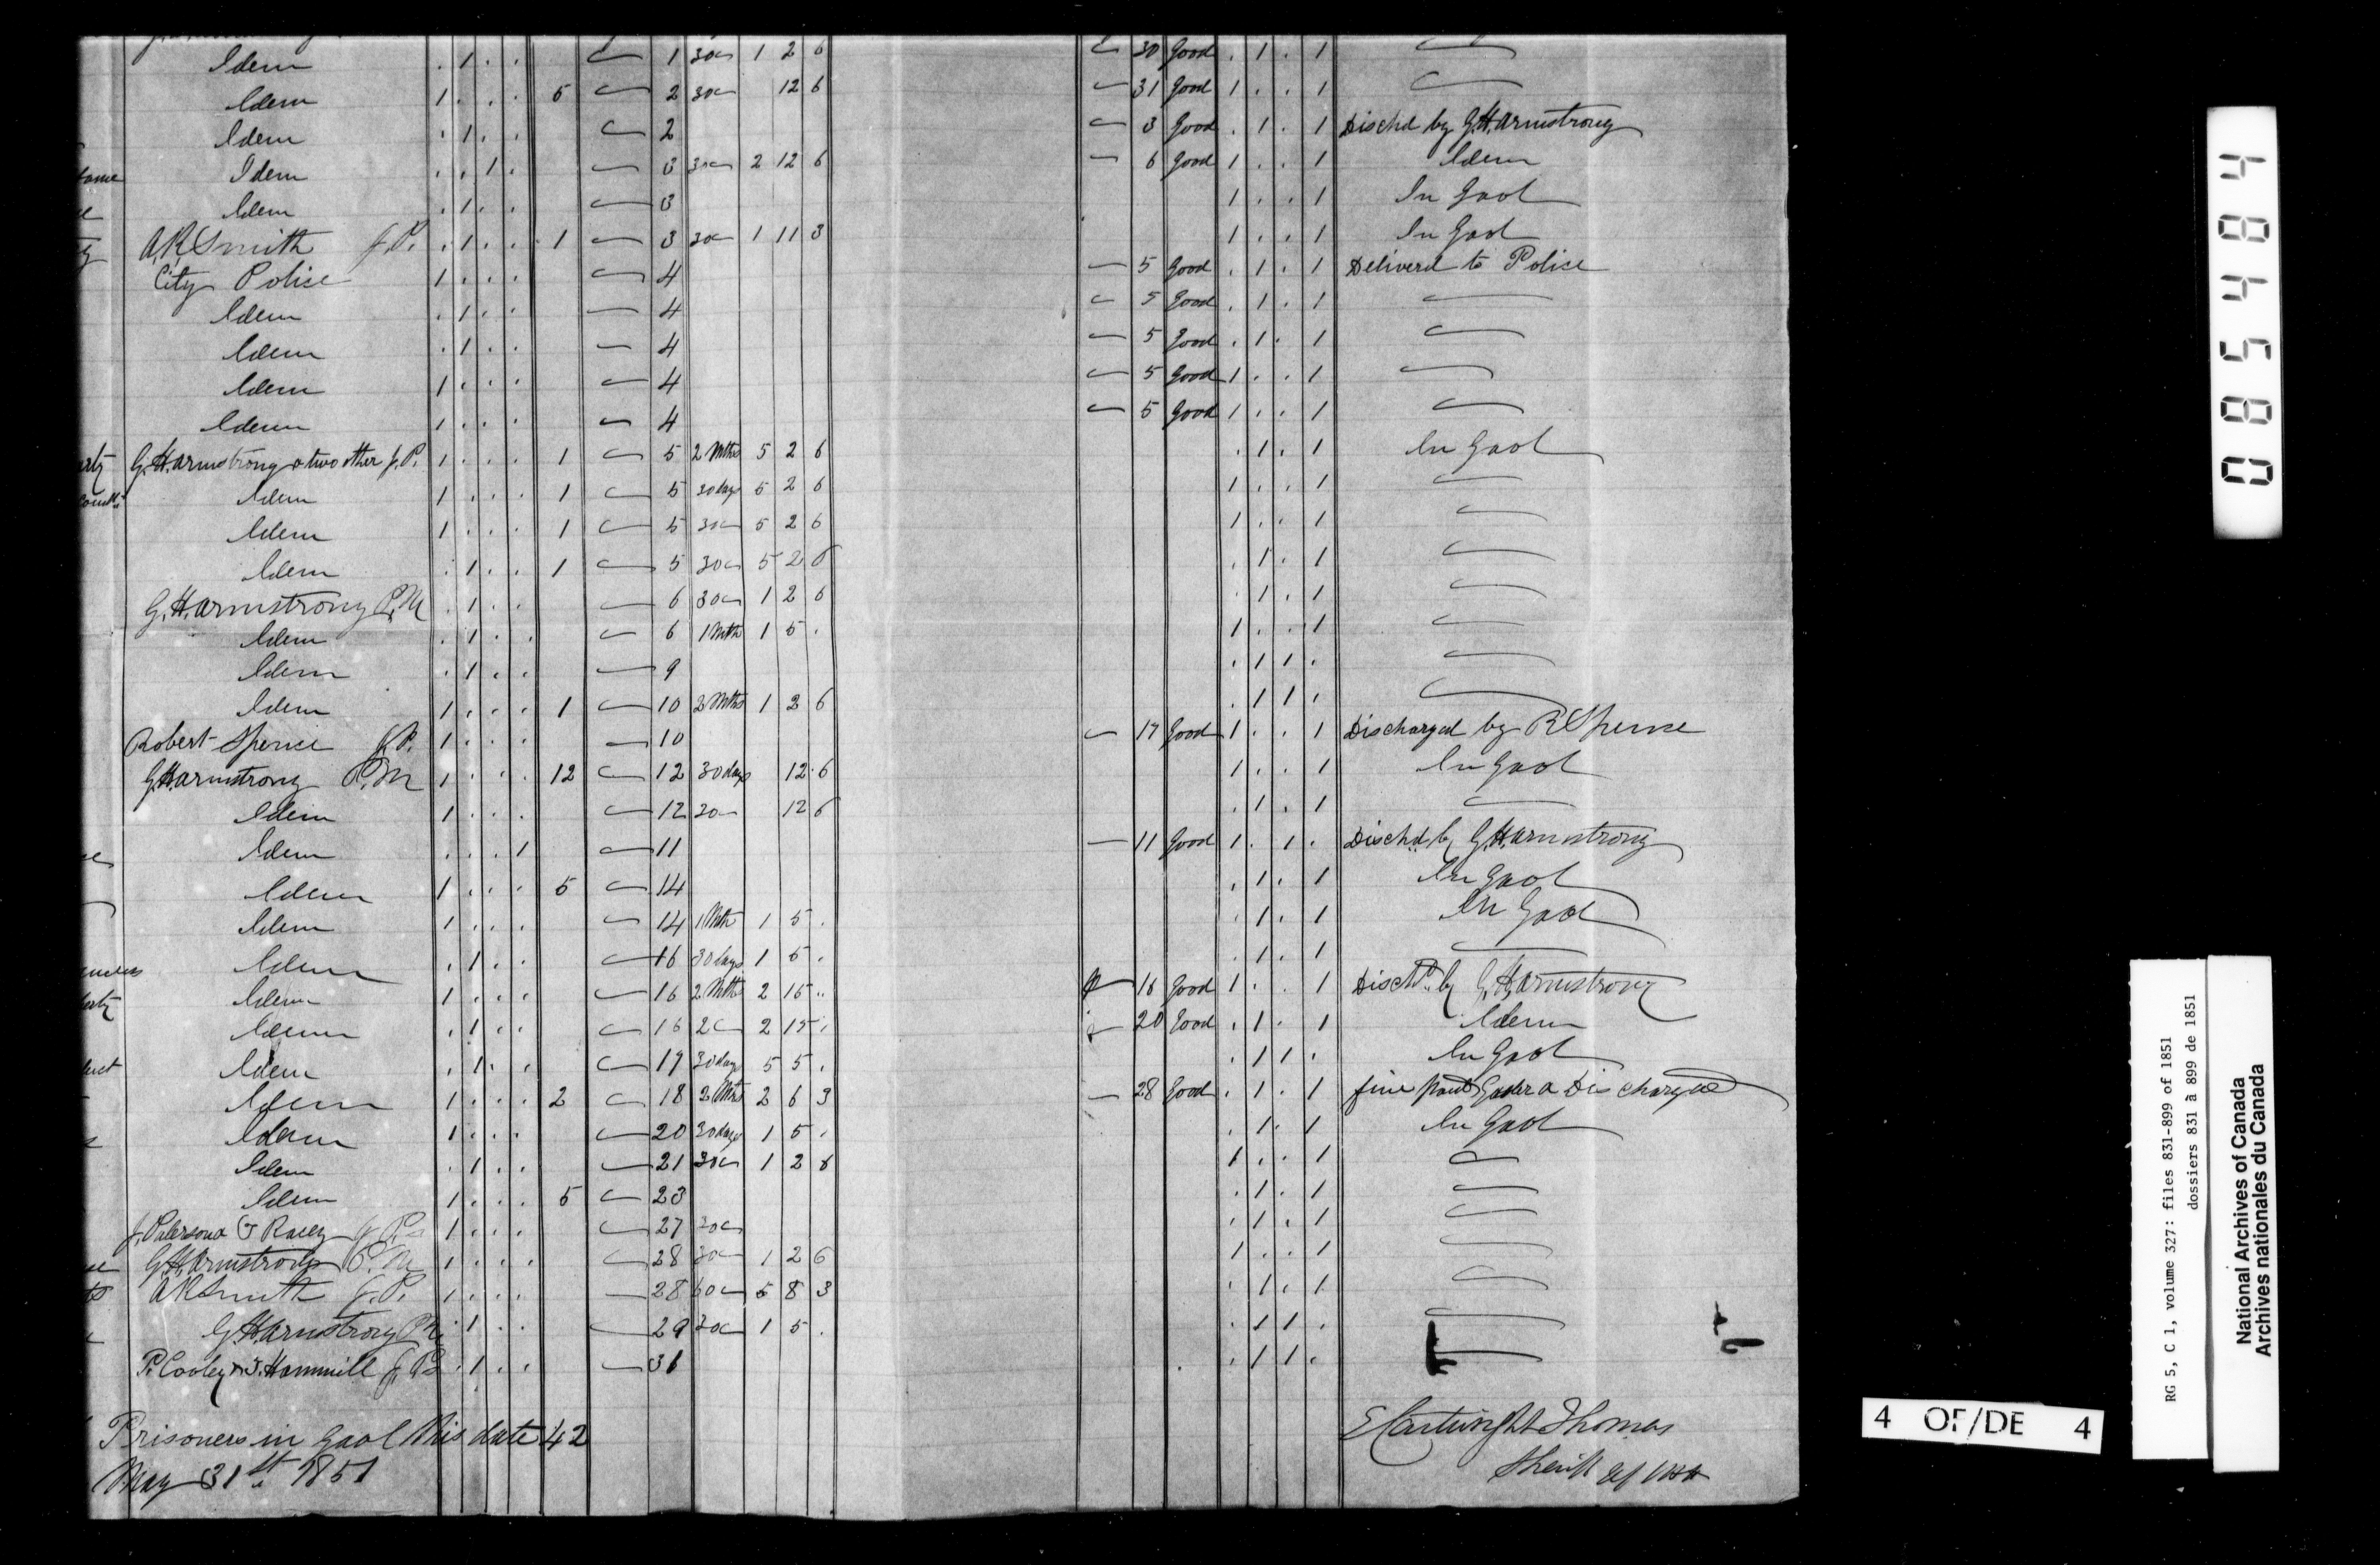 Idem . 1 . . ⁓ 1 30 ⁓ 1 2 6 ⁓ 30 Good . 1 . 1 ⁓
Idem 1 . . . 5 ⁓ 2 30 ⁓ 12 6 ⁓ 31 Good 1 . . 1 ⁓
Idem . 1 . . ⁓ 2 ⁓ 3 Good . 1 . 1 Dischd by G.H. Armstrong
Idem . . 1 . ⁓ 3 30 ⁓ 2 12 6 ⁓ 6 Good 1 . . 1 Idem
Idem . 1 . . ⁓ 3 1 . . 1 In Gaol
A.K. Smith J.P. . 1 . . 1 ⁓ 3 30 ⁓ 1 11 3 1 . . 1 In Gaol
City Police 1 . . . ⁓ 4 ⁓ 5 Good . 1 . 1 Deliverd to Police
Idem . 1 . . ⁓ 4 ⁓ 5 Good . 1 . 1 ⁓
Idem . 1 . . ⁓ 4 ⁓ 5 Good . 1 . 1 ⁓
Idem 1 . . . ⁓ 4 ⁓ 5 Good 1 . . 1 ⁓
Idem 1 . . . ⁓ 4 ⁓ 5 Good 1 . . 1 ⁓
G.H. Armstrong & two other J.P. 1 . . . 1 ⁓ 5 2 Mths 5 2 6 . 1 . 1 In Gaol
Idem 1 . . . 1 ⁓ 5 30 days 5 2 6 1 . . 1 ⁓
Idem 1 . . . 1 ⁓ 5 30 ⁓ 5 2 6 1 . . 1 ⁓
Idem . 1 . . 1 ⁓ 5 30 ⁓ 5 2 6 . 1 . 1 ⁓
G.H. Armstrong P.M . 1 . . ⁓ 6 30 ⁓ 1 2 6 . 1 . 1 ⁓
Idem . 1 . . ⁓ 6 1 Mth 1 5 . 1 . . 1 ⁓
Idem . 1 . . ⁓ 9 . 1 1 . ⁓
Idem 1 . . . 1 ⁓ 10 2 Mths 1 2 6 . 1 1 . ⁓
Robert Spence J.P. 1 . . . ⁓ 10 ⁓ 17 Good 1 . . 1 Discharged by R Spence
G.H. Armstrong P.M 1 . . . 12 ⁓ 12 30 days 12 6 1 . . 1 In Gaol
Idem 1 . . . ⁓ 12 30 ⁓ 12 6 . 1 . 1 ⁓
Idem . . . 1 ⁓ 11 ⁓ 11 Good 1 . 1 . Dischd by G.H. Armstrong
Idem 1 . . . 5 ⁓ 14 . 1 . 1 In Gaol
Idem 1 . . . ⁓ 14 1 Mth 1 5 . . 1 . 1 In Gaol
Idem . 1 . . ⁓ 16 30 days 1 5 . . 1 . 1 ⁓
Idem 1 . . . ⁓ 16 2 Mths 2 15 .. ⁓ 16 Good 1 . . 1 Dischd by G.H. Armstrong
Idem . 1 . . ⁓ 16 2 ⁓ 2 15 . ⁓ 20 Good . 1 . 1 Idem
Idem . 1 . . ⁓ 17 30 days 5 5 . . 1 1 . In Gaol
Idem 1 . . . 2 ⁓ 18 2 Mths 2 6 3 ⁓ 28 Good . 1 . 1 fine Discharged
Idem 1 . . . ⁓ 20 30 days 1 5 . . 1 . 1 In Gaol
Idem . 1 . . ⁓ 21 30 ⁓ 1 2 6 1 . . 1 ⁓
Idem 1 . . . 5 ⁓ 23 . 1 . 1 ⁓
1 . . . ⁓ 27 30 ⁓ . 1 . 1 ⁓
G.H. Armstrong P.M 1 . . . ⁓ 28 30 ⁓ 1 2 6 1 . . 1 ⁓
A K Smith J.P. 1 . . . ⁓ 28 60 ⁓ 5 8 3 . 1 . 1 ⁓
G.H. Armstrong P.M . 1 . . ⁓ 29 30 ⁓ 1 5 . . 1 1 . ⁓
P. Cooley & J. Hammill J.Ps . 1 . . ⁓ 31 . 1 1 . ⁓
Prisoners in Gaol this date 42
May 31st 1851
E Cartwright Thomas
Sheriff
085484
4 OF/DE 4
RG 5, C 1, volume 327: files 831-899 of 1851
dossiers 831 à 899 de 1851
National Archives of Canada
Archives nationales du Canada